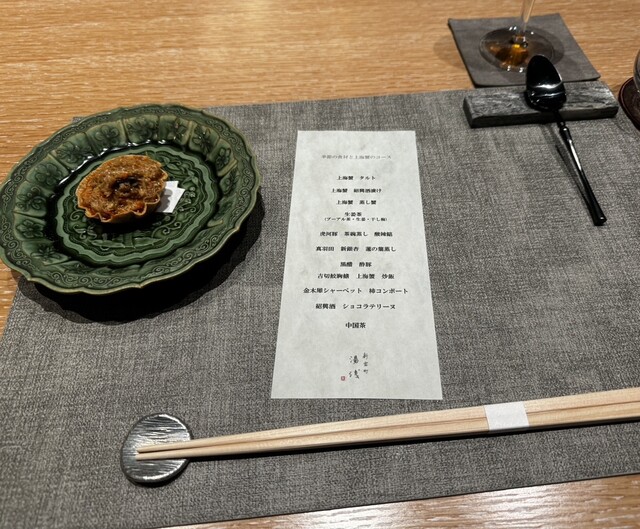 季節の食材と上海蟹のコース
上海蟹 タルト
上海蟹 紹興酒漬け
上海蟹 蒸し蟹
生姜茶
(プーアル茶・生姜・干し鮑)
虎河豚 茶碗蒸し 酸辣餡
真羽田 新銀杏 蓮の葉蒸し
黒醋 酢豚
吉切鮫胸鰭 上海蟹 炒飯
金木犀シャーベット 柿コンポート
紹興酒 ショコラテリーヌ
中国茶
新富町
湯浅